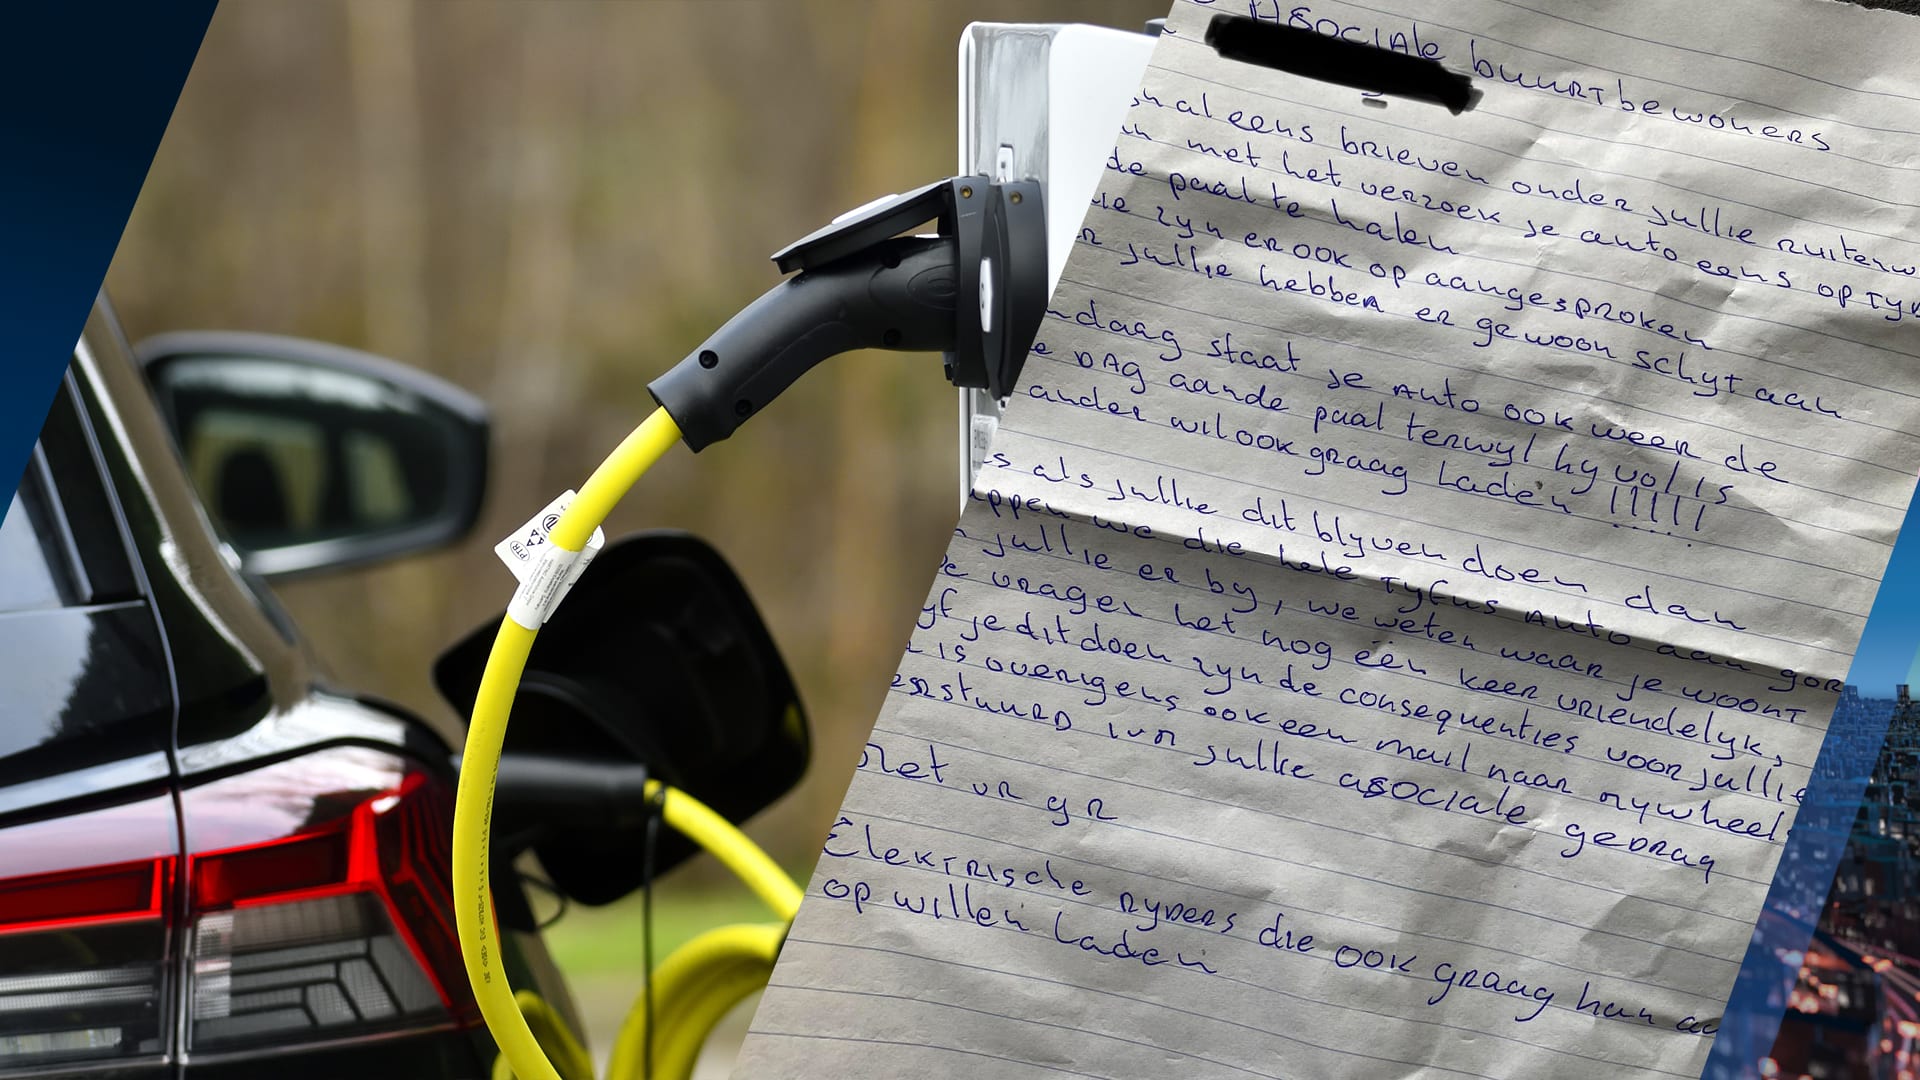 Asociale buurtbewoners
maleens brieven onder jullie ruiterw
met het verzoek je auto eens op tyd
de paal te halen
zyn er ook op aangesproken
jullie hebben er gewoon schyt aan
ndaag staat je Auto ook weer de
e DAg aan de paal terwyl hy vol is
ander wil ook graag laden !!!!!
s als jullie dit blyven doen dan
ppen we die hele Tyfus Auto aan gor
jullie er by, we weten waar je woont
e vragen het nog één keer vriendelyk,
yf je dit doen zyn de consequenties voor jullie
is overigens ook een mail naar mywheels
erstuurd ivm jullie asociale gedrag
Met vr gr
Elektrische ryders die ook graag hun au
op willen laden
PTR